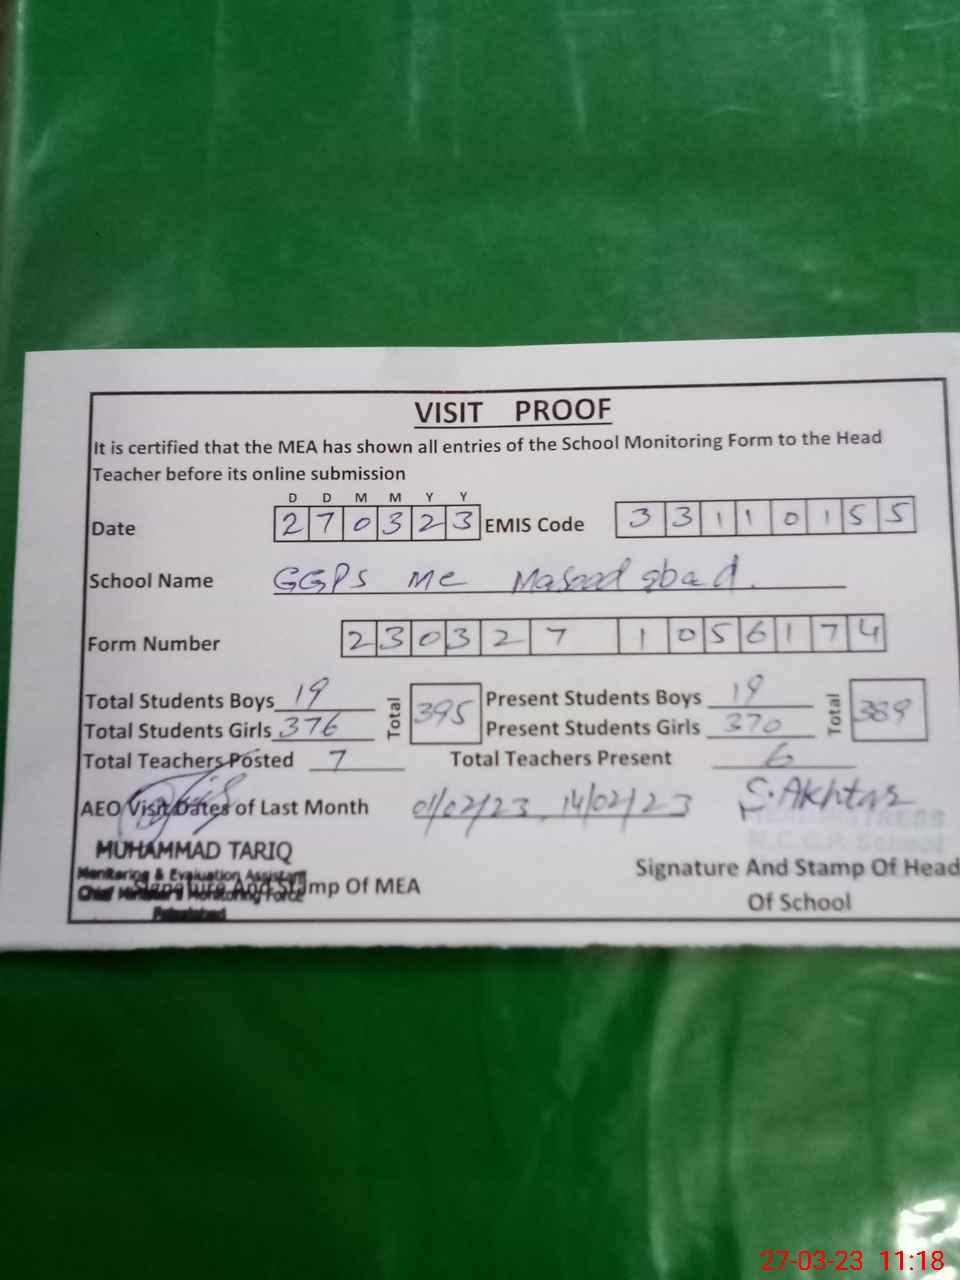 VISIT PROOF
It is certified that the MEA has shown all entries of the School Monitoring Form to the Head
Teacher before its online submission
D D M M Y Y
Date 2 7 0 3 2 3 EMIS Code 3 3 1 1 0 1 5 5
School Name GGPS MC Masood abad.
Form Number 2 3 0 3 2 7 1 0 5 6 1 7 4
Total Students Boys 19 Total 395 Present Students Boys 19 Total 389
Total Students Girls 376 Present Students Girls 370
Total Teachers Posted 7 Total Teachers Present 6
AEO Visit Dates of Last Month 01/02/23, 14/02/23 S.Akhtar
HEADMISTRESS
MUHAMMAD TARIQ M.C.G.P. School
Monitoring & Evaluation Assistant Signature And Stamp Of Head
Chief Minister's Monitoring Force
Signature And Stamp Of MEA Of School
Faisalabad
27-03-23 11:18